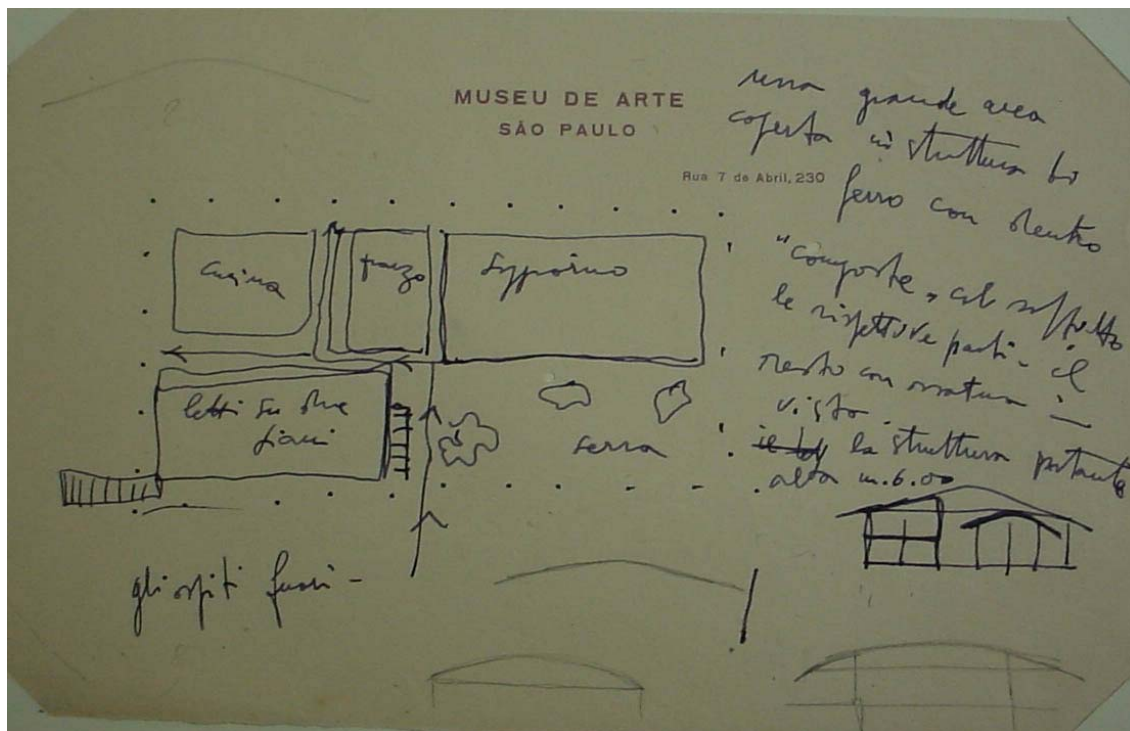 MUSEU DE ARTE
SÃO PAULO
Rua 7 de Abril, 230
una grande area
coperta in struttura di
ferro con dentro
"composte" col soffitto
le rispettive parti - il
resto con ossatura in
vista.
la struttura portante
alta m. 6.00
cucina
pranzo
soggiorno
letti su due
piani
serra
gli ospiti fuori -